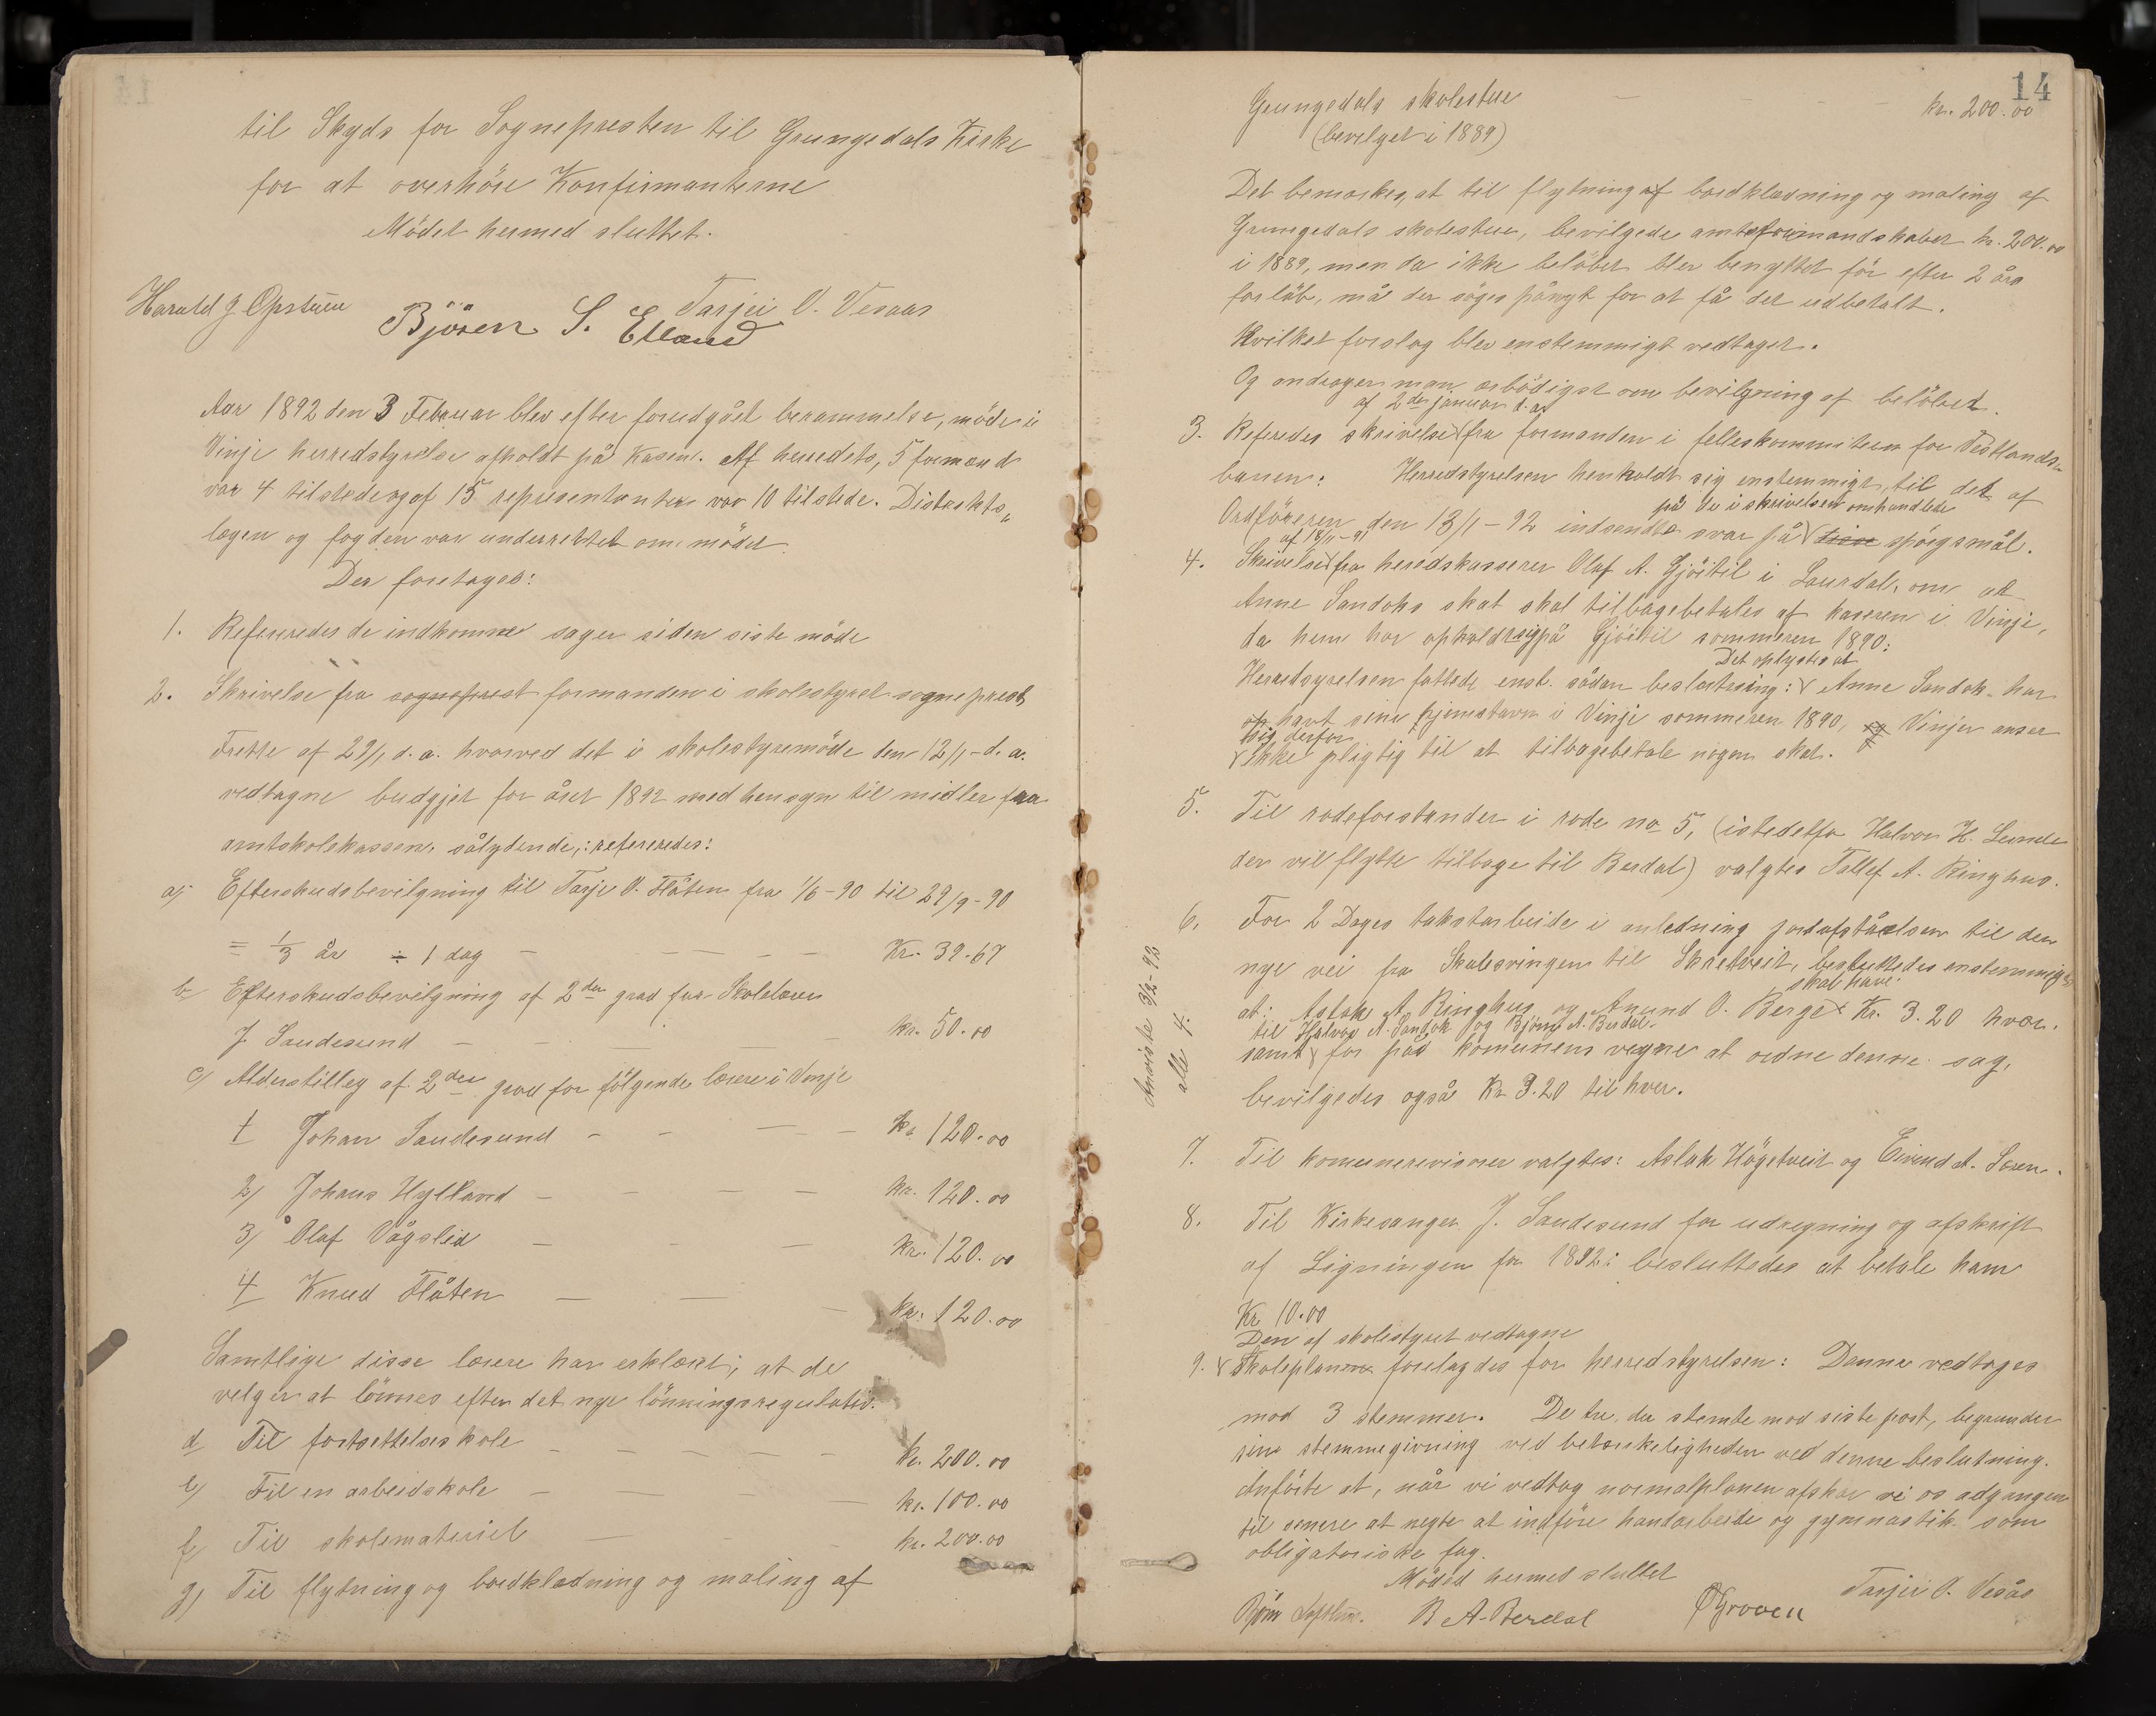 til Skyds for Sognepresten til Grungedals Kirke
for at overhöre Konfirmanterne
Mödet hermed sluttet.
Harald J. Opstuen Tarjei O. Vesaas
Björn S. Edland
Aar 1892 den 3 Februar blev efter forudgået berammelse, möde i
Vinje herredstyrelse afholdt på Kasen. Af herredets, 5 formænd
var 4 tilstede og af 15 representanter var 10 tilstede. Distrikts„
lægen og fogden var underrettet om mödet.
Der foretoges:
1. Refereredes de indkomne sager siden siste möde
2. Skrivelse fra sogneprest formanden i skolestyret sogneprest
Frette af 29/1 d. a. hvorved det i skolestyremöde den 12/1 - d. a.
vedtagne budgjet for året 1892 med hensyn til midler fra
amtskolekassen, sålydende,: refereredes:
a) Efterskudsbevilgning til Tarje O. Flåten fra 1/6 - 90 til 29/9 - 90
= 1/3 år ÷ 1 dag — — — — Kr. 39.67
b Efterskudsbevilgning af 2den grad for Skolelærer
J. Saudesund — — — — kr. 50.00
c) Alderstilleg af 2den grad for fölgende lærere i Vinje
1 Johan Saudesund — — — — kr. 120.00
2) Johans Hylland — — — — kr. 120.00
3) Olaf Vågslid — — — kr. 120.00
4 Knud Flåten — — — kr. 120.00
Samtlige disse lærere har erklært, at de
velger at lönnes efter det nye lönningsregulativ.
d Til fortsettelseskole — — — — — kr. 200.00
e) Til en arbeidskole — — — — kr. 100.00
f) Til skolemateriel — — kr. 200.00
g) Til flytning og bordklædning og maling af
14
Grungedals skolestue — — — — kr. 200.00
(bevilget i 1889)
Det bemerkes, at til flytning af bordklædning og maling af
Grungedals skolestue, bevilgede amtsformandskabet kr. 200.00
i 1889, men da ikke belöbet blev benyttet för efter 2 års
forlöb, må der söges pånyt for at få det udbetalt.
Hvilket forslag blev enstemmigt vedtaget.
Og andrager man ærbödigst om bevilgning af belöbet.
af 2den januar d. a.
3. Referedes skrivelse fra formanden i felleskommiteen for Vestlands„
banen: Herredstyrelsen henholdt sig enstemmigt til det af
på de i skrivelsen omhandlede
Ordföreren den 13/1 - 92 indsendte svar på disse spörgsmål.
af 18/11 - 91
4. Skrivelse fra heredskasserer Olaf A. Gjöitil i Laurdal, om at
Anne Sandoks skat skal tilbagebetales af kaseren i Vinje,
da hun har opholdt sig på Gjöitil sommeren 1890:
Det oplystes at
Herredsyrelsen fattede enst. sådan beslutning: Anne Sandok har
op havt sin hjemstavn i Vinje sommeren 1890, og Vinje anser
sig derfor
ikke pligtig til at tilbagebetale nogen skat.
5. Til rodeforstander i rode no 5, (istedetfor Halvor H. Lunde
der vil flytte tilbage til Berdal) valgtes Tallef A. Ringhus.
6. For 2 Dages takstarbeide i anledning jordafståelsen til den
nye vei fra Skulesvingen til Skretveit, besluttedes enstemmigt
skal have
at: Aslak A. Ringhus og Anund O. Berge Kr. 3.20 hver.
til Halvor A. Sandok og Björn A. Berdal
samt for på komunens vegne at ordne denne sag,
bevilgedes også Kr 3.20 til hver.
Anviste 3/2 - 92
alle 4.
7. Til komunerevisorer valgtes: Aslak Högetveit og Eivind A. Særen.
8. Til Kirkesanger J. Saudesund for udregning og afskrift
af Ligningen for 1892: besluttedes at betale ham
Kr 10.00
Den af skolestyret vedtagne
9. Skoleplanen forelagdes for herredstyrelsen: Denne vedtoges
mod 3 stemmer. De tre, der stemte mod siste post, begrunder
sin stemmegivning ved betenkeligheden ved denne beslutning.
Anförte at, når vi vedtog normalplanen afskar vi os adgangen
til senere at negte at indföre handarbeide og gymnastik som
obligatoriske fag.
Mödet hermed sluttet
B A. Berdal ØGroven Tarjei O. Vesås